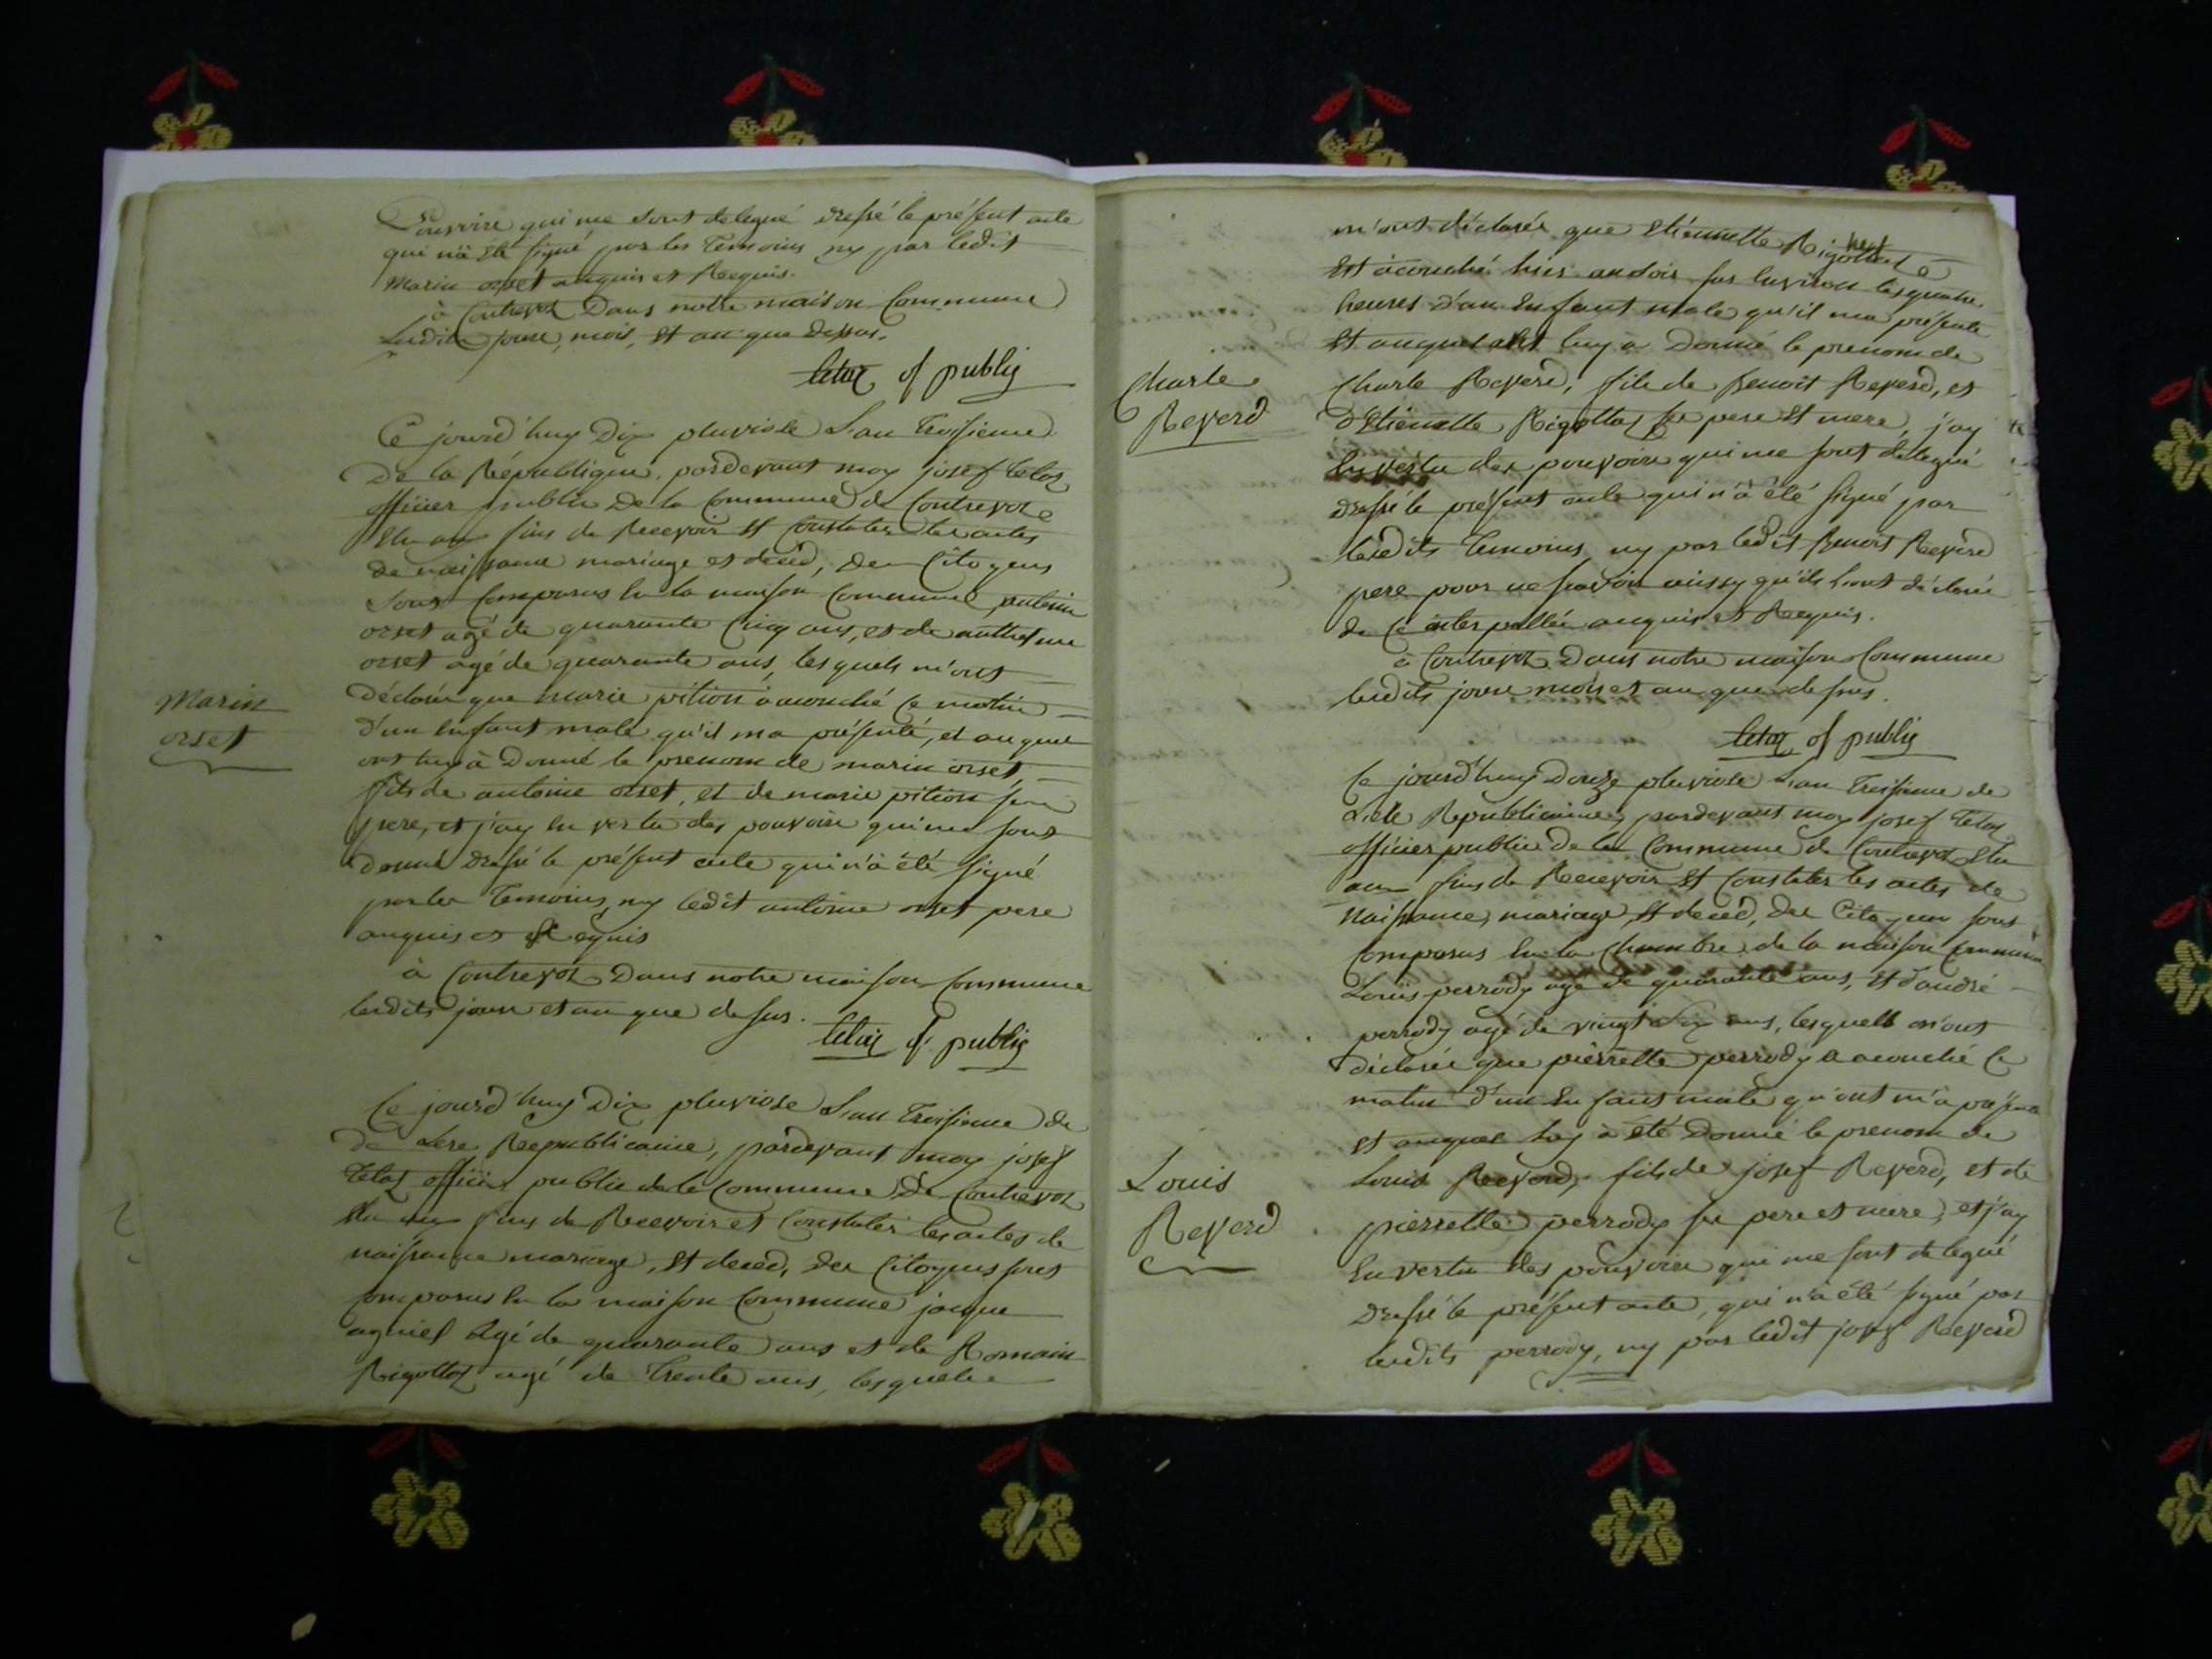 Pouvoire qui me sont delegué dressé le présent acte
qui n'a été signé par les temoins ny par ledit
Marin orset anquis et Requis.
à Contrevoz Dans notre maison Commune
Ledit jour, mois, et an que dessus.
tetaz of public
Ce jourd'huy Dix pluviose L'an troisieme
De la République, pardevant moy josef tetaz
officier public De la Commune de Contrevoz
Elu aux fins de Recevoir et Constater les actes
de naissance mariage et décéd, des Citoyens
sont Comparus en la maison Commune, antoine
orset agé de quarante Cinq ans, et de
orset agé de quarante ans, lesquels m'ont
déclaré que marie pition à acouché ce matin
d'un enfant male qu'il ma présenté, et auquel
ont luy à Donné le prenom de marin orset,
fils de antoine orset, et de marie pition
pere, et j'ay en vertu des pouvoire qui me sont
donné dressé le présent acte qui n'à été signé
par les temoins, ny ledit antoine orset pere
anquis et Requis
à Contrevoz Dans notre maison Commune
lesdits jour et an que dessus.
tetaz of public
Marin
orset
Ce jourd'huy Dix pluviose L'an troisieme de
de Lere Republicaine, pardevant moy josef
tetaz officier public de la Commune De Contrevoz
Elu aux fins de Recevoir et Constater les actes de
naissance mariage, et deced, des Citoyens sont
comparus en la maison Commune jaque
agniel agé de quarante ans et de Romain
Rigottaz agé de trente ans, lesquels
m'ont déclarés que Etiennette Rigottaz
Est acouché hier au soir sur environ les quatre
heures d'un Enfant male qu'il ma présenté
Et auquel ont luy à Donné le prenom de
Charle Reverd, fils de Benoit Reverd, et
d'Etiennette Rigottaz ses pere et mere, j'ay
En vertu des pouvoire qui me sont delegué
dressé le présent acte qui n'à été signé par
lesdits temoins, ny par ledit Benoit Reverd
pere pour ne sçavoir ainsy qu'ils l'ont déclaré
de ce interpellée anquis et Requis.
à Contrevoz Dans notre maison Commune
lesdits jour mois et an que dessus.
tetaz of public
Charle
Reverd
Ce jourd'huy Douze pluviose L'an troisieme de
Lere Republicaine, pardevant moy josef tetaz
officier public De la Commune de Contrevoz Elu
aux fins de Recevoir et Constater les actes de
Naissance, mariage, et deced, des Citoyens sont
Comparus en la Chambre de la maison Commune
Louis perrody agé de quarante ans, et d'andré
perrody agé de vingt Six ans, lesquels m'ont
déclarée que pierrette perrody a acouché ce
matin d'un Enfant male qu'ont m'a présenté
et auquel luy à été Donné le prenom de
Louis Reverd, fils de josef Reverd, et de
pierrette perrody ses pere et mere, et j'ay
En vertu des pouvoire qui me sont delegué
dressé le présent acte, qui n'à été signé par
lesdits perrody, ny par ledit josef Reverd
Louis
Reverd